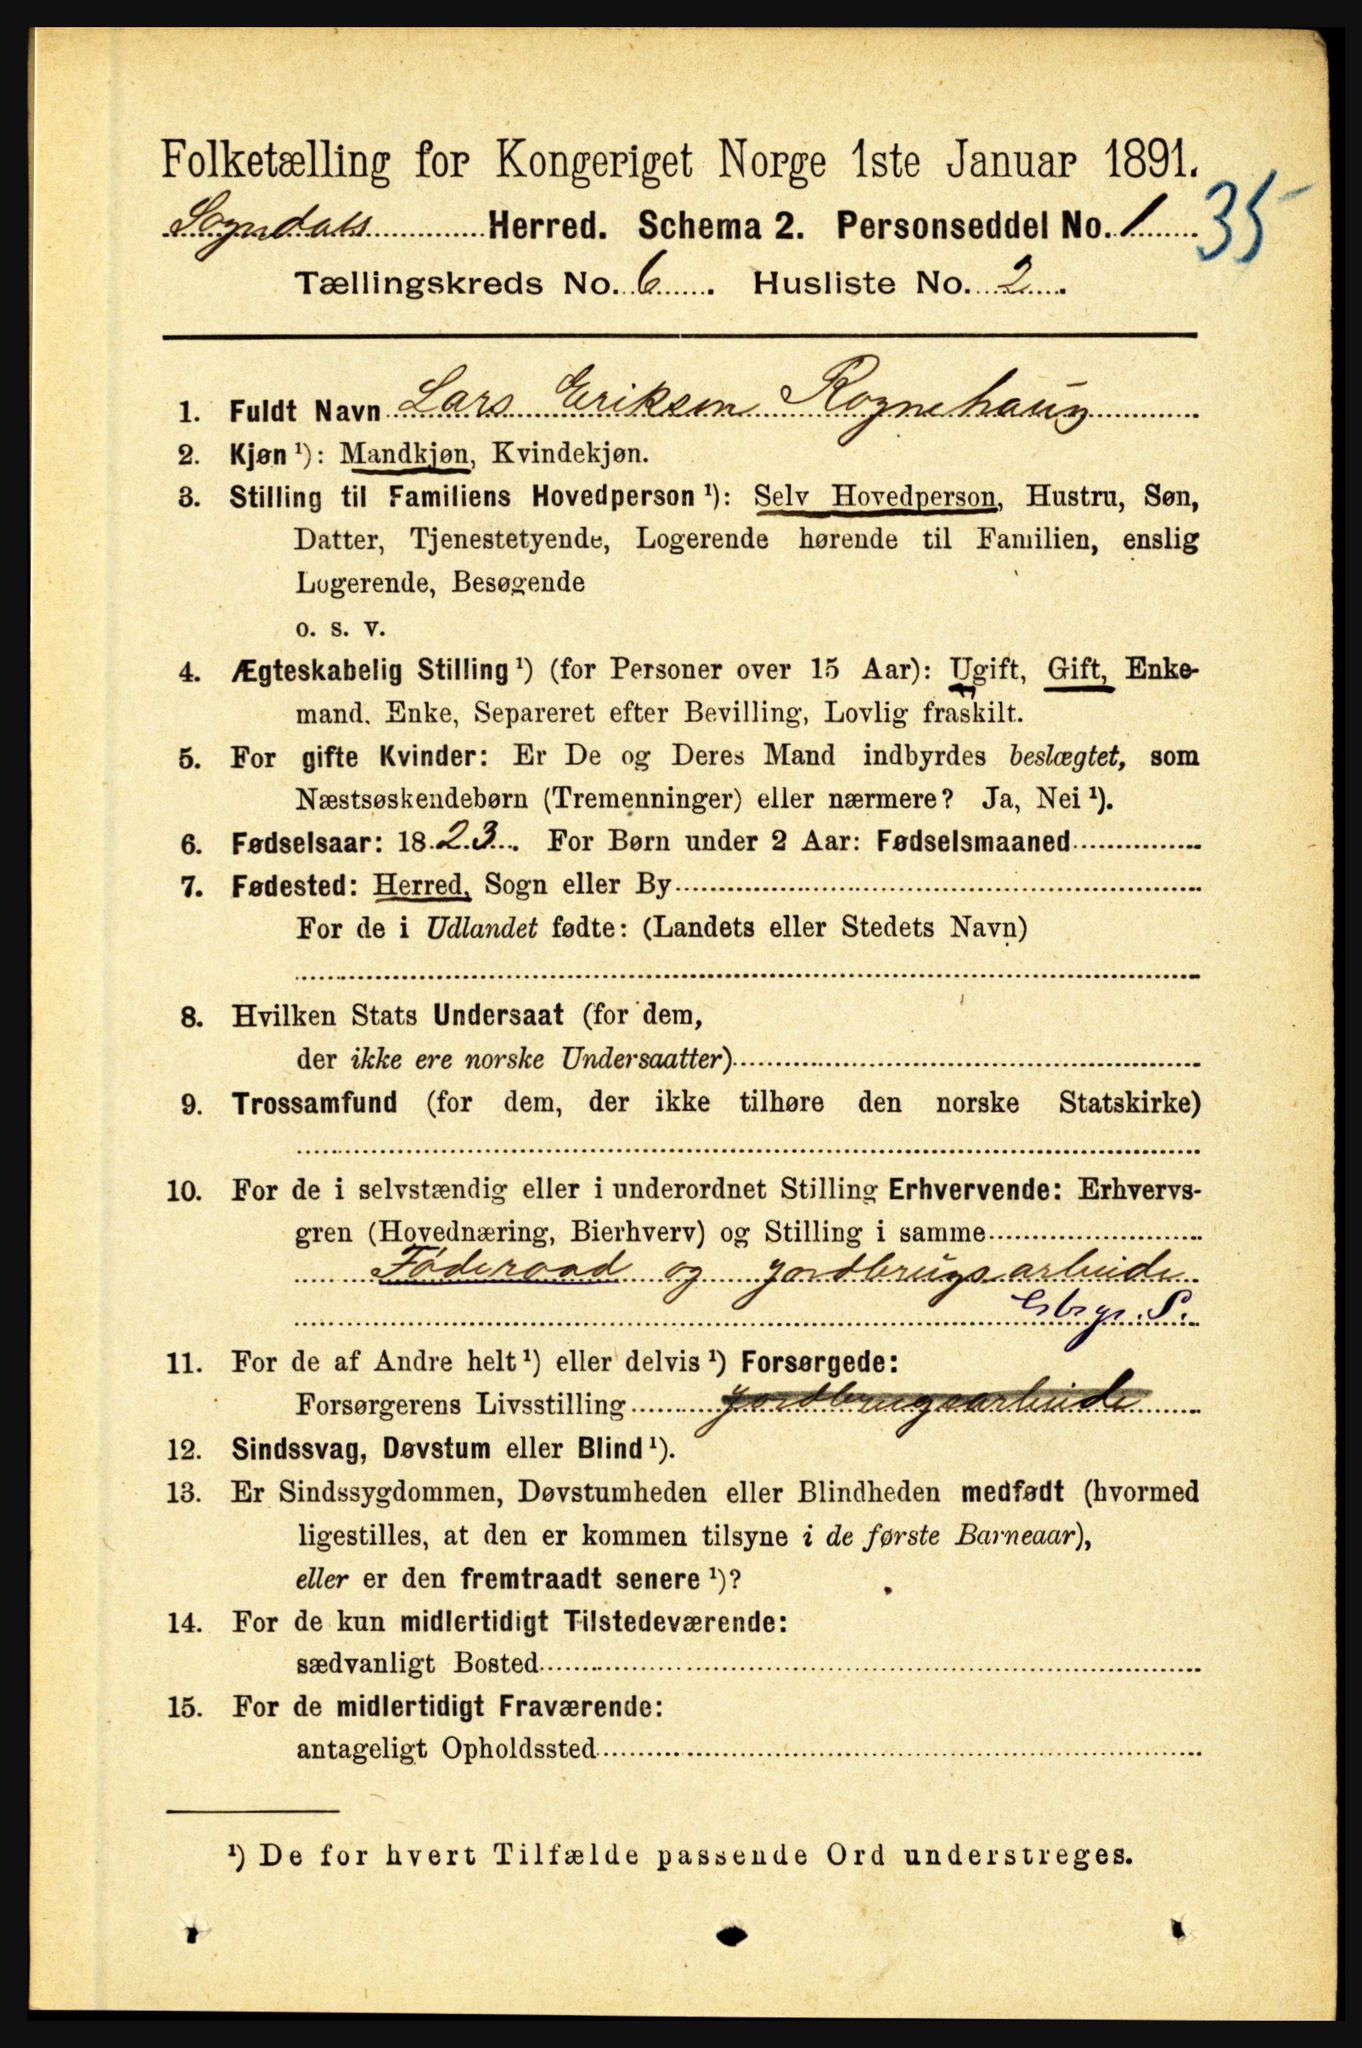 Folketælling for Kongeriget Norge 1ste Januar 1891.
35
Sogndals Herred. Schema 2. Personseddel No. 1
Tællingskreds No. 6. Husliste No. 2.
1. Fuldt Navn Lars Eriksen Rognehaug
2. Kjøn ¹): Mandkjøn, Kvindekjøn.
3. Stilling til Familiens Hovedperson ¹): Selv Hovedperson, Hustru, Søn,
Datter, Tjenestetyende, Logerende hørende til Familien, enslig
Logerende, Besøgende
o. s. v.
4. Ægteskabelig Stilling ¹) (for Personer over 15 Aar): Ugift, Gift, Enke-
mand, Enke, Separeret efter Bevilling, Lovlig fraskilt.
5. For gifte Kvinder: Er De og Deres Mand indbyrdes beslægtet, som
Næstsøskendebørn (Tremenninger) eller nærmere? Ja, Nei ¹).
6. Fødselsaar: 1823. For Børn under 2 Aar: Fødselsmaaned
7. Fødested: Herred, Sogn eller By
For de i Udlandet fødte: (Landets eller Stedets Navn)
8. Hvilken Stats Undersaat (for dem,
der ikke ere norske Undersaatter)
9. Trossamfund (for dem, der ikke tilhøre den norske Statskirke)
10. For de i selvstændig eller i underordnet Stilling Erhvervende: Erhvervs-
gren (Hovednæring, Bierhverv) og Stilling i samme
Föderaad og jordbrugsarbeide
S.
11. For de af Andre helt ¹) eller delvis ¹) Forsørgede:
Forsørgerens Livsstilling jordbrugsarbeide
12. Sindssvag, Døvstum eller Blind ¹).
13. Er Sindssygdommen, Døvstumheden eller Blindheden medfødt (hvormed
ligestilles, at den er kommen tilsyne i de første Barneaar),
eller er den fremtraadt senere ¹)?
14. For de kun midlertidigt Tilstedeværende:
sædvanligt Bosted
15. For de midlertidigt Fraværende:
antageligt Opholdssted
¹) De for hvert Tilfælde passende Ord understreges.